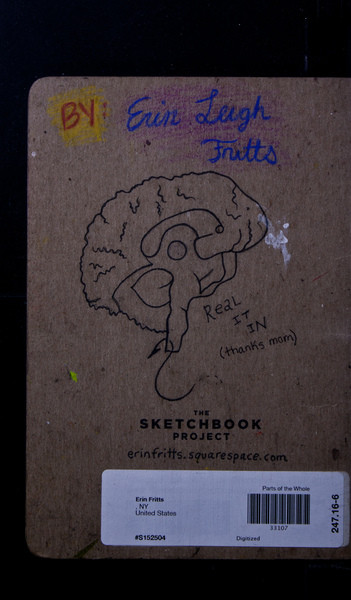 BY: Erin Leigh
Fritts
ReaL
IT
IN
(thanks mom)
THE
SKETCHBOOK
PROJECT
erinfritts.squarespace.com
Parts of the Whole
Erin Fritts
, NY
United States
33107
#S152504
Digitized
247.16-6